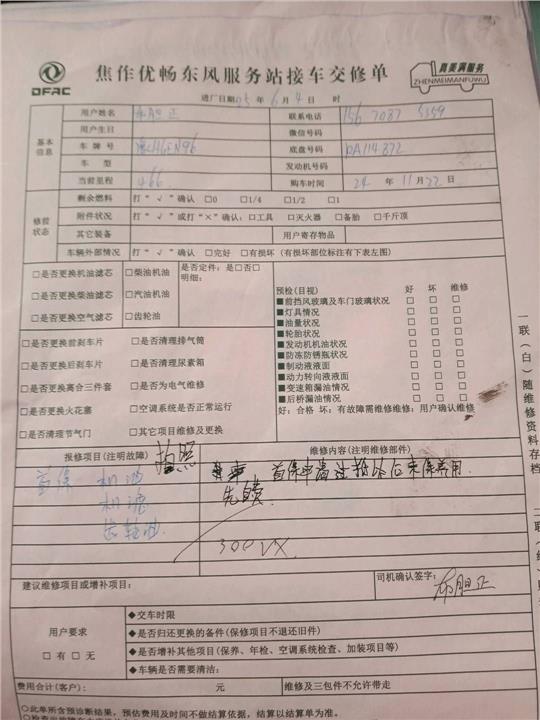 DFAC
焦作优畅东风服务站接车交修单
真美满服务
ZHENMEIMANFUWU
进厂日期 25 年 6 月 4 日 时
基本信息
用户姓名 布胆正 联系电话 156 7087 5359
用户生日 微信号码
车牌号 底盘号码 RA114872
车型 发动机号码
当前里程 466 购车时间 24 年 11 月 22 日
修前状态
剩余燃料 打“√”确认 □0 □1/4 □1/2 □1
附件状况 打“√”或打“×”确认:□工具 □灭火器 □备胎 □千斤顶
其它装备 用户寄存物品
车辆外部情况 打“√”确认 □完好 □有损坏(有损坏部位标注有下表左图)
□是否更换机油滤芯 □柴油机油 是否定件:是□否□
明细:
□是否更换柴油滤芯 □汽油机油
□是否更换空气滤芯 □齿轮油
预检(目视) 好 坏 维修
■前挡风玻璃及车门玻璃状况 □ □ □
■灯具情况 □ □ □
■油量状况 □ □ □
■轮胎状况 □ □ □
■发动机机油状况 □ □ □
■防冻防锈瓶状况 □ □ □
■制动液液面 □ □ □
■动力转向液液面 □ □ □
■变速箱漏油情况 □ □ □
■后桥漏油情况 □ □ □
好:合格 坏:有故障需维修维修:用户确认维修
□是否更换前刹车片 □是否清理排气筒
□是否更换后刹车片 □是否清理尿素箱
□是否更换离合三件套 □是否为电气维修
□是否更换火花塞 □空调系统是否正常运行
□是否清理节气门 □其它项目维修及更换
报修项目(注明故障) 拍照 维修内容(注明维修部件)
首保 机油
机滤
齿轮油
首保申请过报外后来保费用
先自费
300VX
建议维修项目或增补项目:
司机确认签字:
布胆正
用户要求
□有 □无
◆交车时限
◆是否归还更换的备件(保修项目不退还旧件)
◆是否增补其他项目(保养、年检、空调系统检查、加装项目等)
◆车辆是否需要清洁:
费用合计(客户): 元 维修及三包件不允许带走
○此单所含预诊断结果,预估费用及时间不做结算依据,结算以结算单为准。
一联(白)随维修资料存档